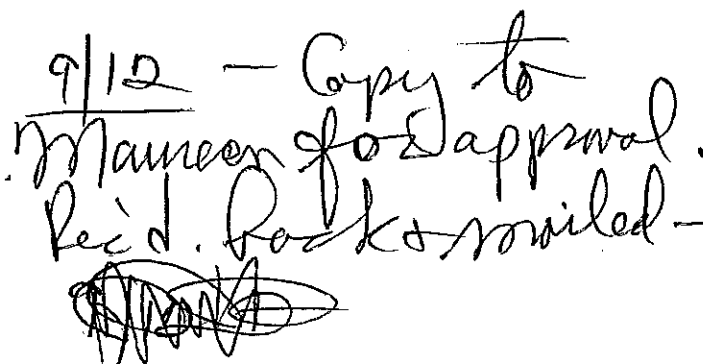 9/12 — Copy to
Maureen for approval.
Rec'd. back & mailed —